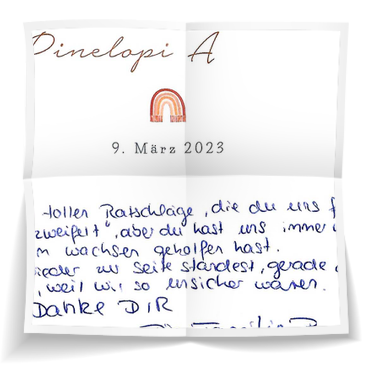 Pinelopi A
9. März 2023
tollen Ratschläge, die du uns f
zweifelt", aber du hast uns immer
m wachsen geholfen hast.
ieder zur Seite standest, gerade
, weil wir so unsicher waren.
Danke DIR